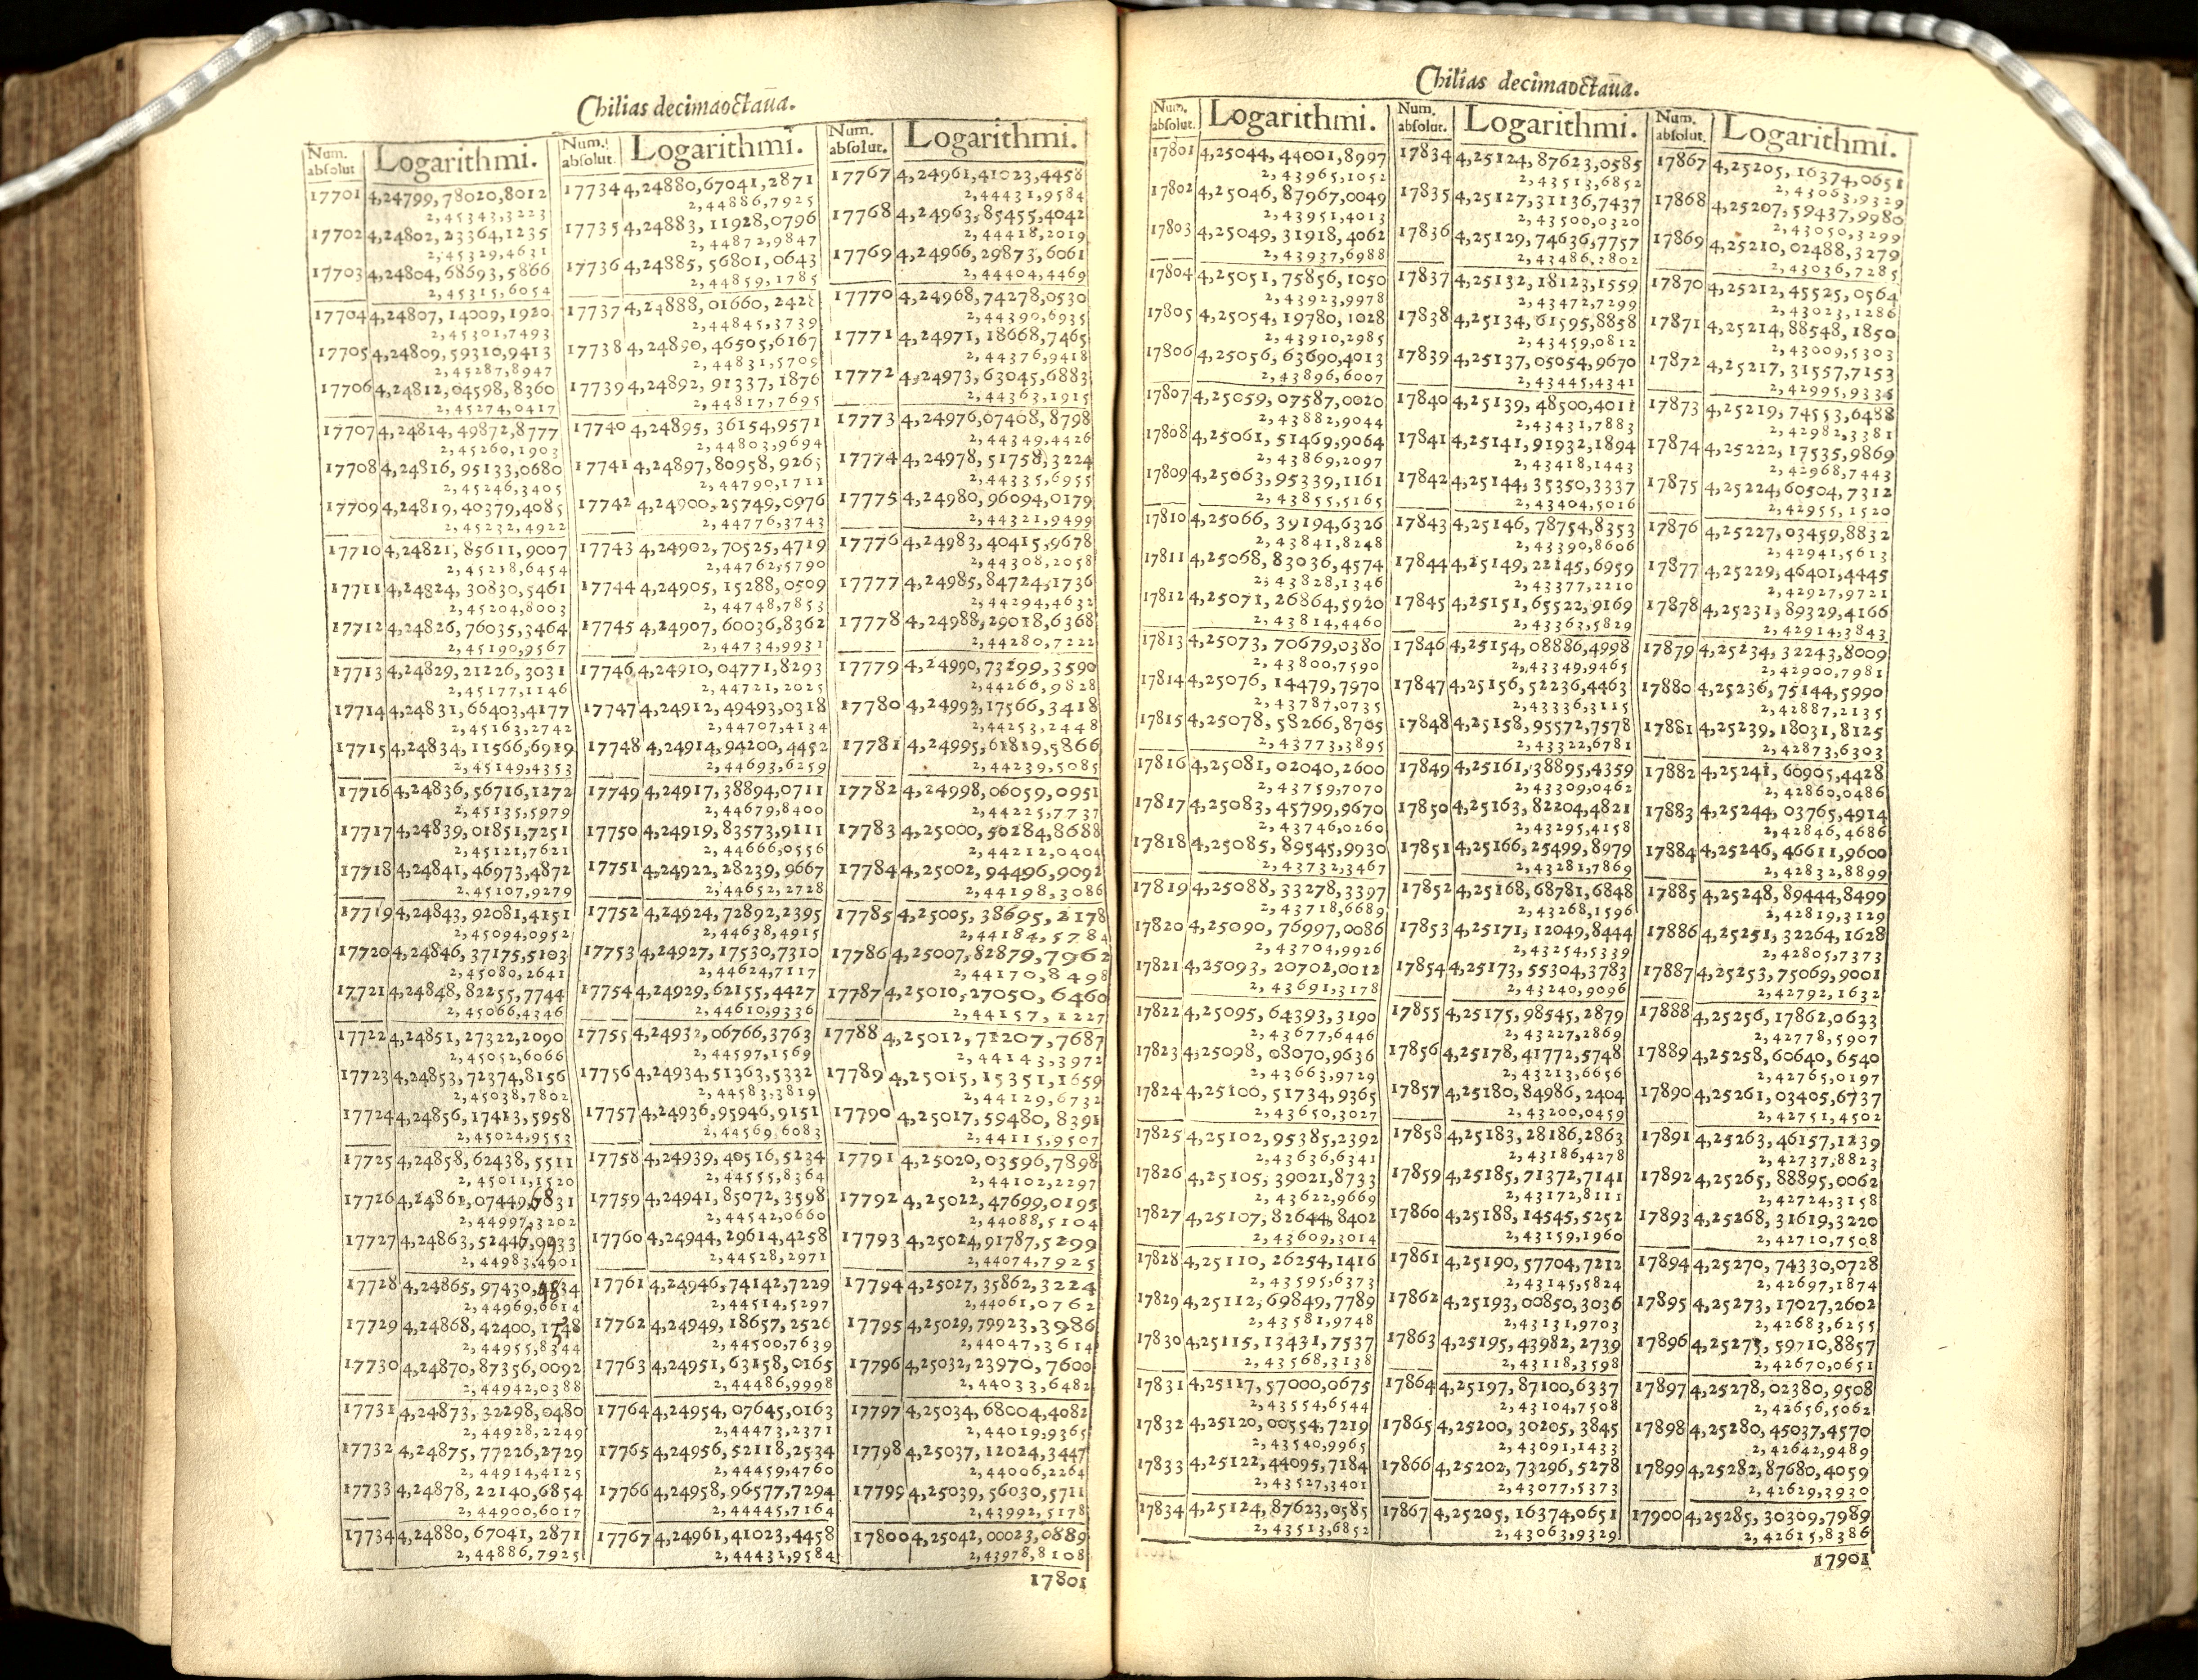 Chilias decimaoctaūa.
Num. absolut
Logarithmi.
17701 4,24799,78020,8012
2,45343,3223
17702 4,24802,23364,1235
2,45329,4631
17703 4,24804,68693,5866
2,45315,6054
17704 4,24807,14009,1920
2,45301,7493
17705 4,24809,59310,9413
2,45287,8947
17706 4,24812,04598,8360
2,45274,0417
17707 4,24814,49872,8777
2,45260,1903
17708 4,24816,95133,0680
2,45246,3405
17709 4,24819,40379,4085
2,45232,4922
17710 4,24821,85611,9007
2,45218,6454
17711 4,24824,30830,5461
2,45204,8003
17712 4,24826,76035,3464
2,45190,9567
17713 4,24829,21226,3031
2,45177,1146
17714 4,24831,66403,4177
2,45163,2742
17715 4,24834,11566,6919
2,45149,4353
17716 4,24836,56716,1272
2,45135,5979
17717 4,24839,01851,7251
2,45121,7621
17718 4,24841,46973,4872
2,45107,9279
17719 4,24843,92081,4151
2,45094,0952
17720 4,24846,37175,5103
2,45080,2641
17721 4,24848,82255,7744
2,45066,4346
17722 4,24851,27322,2090
2,45052,6066
17723 4,24853,72374,8156
2,45038,7802
17724 4,24856,17413,5958
2,45024,9553
17725 4,24858,62438,5511
2,45011,1520
17726
2,44997,3202
17727
2,44983,4901
17728
2,44969,6614
17729
2,44955,8344
17730 4,24870,87356,0092
2,44942,0388
17731 4,24873,32298,0480
2,44928,2249
17732 4,24875,77226,2729
2,44914,4125
17733 4,24878,22140,6854
2,44900,6017
17734 4,24880,67041,2871
2,44886,7925
Num. absolut.
Logarithmi.
17734 4,24880,67041,2871
2,44886,7925
17735 4,24883,11928,0796
2,44872,9847
17736 4,24885,56801,0643
2,44859,1785
17737 4,24888,01660,2428
2,44845,3739
17738 4,24890,46505,6167
2,44831,5709
17739 4,24892,91337,1876
2,44817,7695
17740 4,24895,36154,9571
2,44803,9694
17741 4,24897,80958,9265
2,44790,1711
17742 4,24900,25749,0976
2,44776,3743
17743 4,24902,70525,4719
2,44762,5790
17744 4,24905,15288,0509
2,44748,7853
17745 4,24907,60036,8362
2,44734,9931
17746 4,24910,04771,8293
2,44721,2025
17747 4,24912,49493,0318
2,44707,4134
17748 4,24914,94200,4452
2,44693,6259
17749 4,24917,38894,0711
2,44679,8400
17750 4,24919,83573,9111
2,44666,0556
17751 4,24922,28239,9667
2,44652,2728
17752 4,24924,72892,2395
2,44638,4915
17753 4,24927,17530,7310
2,44624,7117
17754 4,24929,62155,4427
2,44610,9336
17755 4,24932,06766,3763
2,44597,1569
17756 4,24934,51363,5332
2,44583,3819
17757 4,24936,95946,9151
2,44569,6083
17758 4,24939,40516,5234
2,44555,8364
17759 4,24941,85072,3598
2,44542,0660
17760 4,24944,29614,4258
2,44528,2971
17761 4,24946,74142,7229
2,44514,5297
17762 4,24949,18657,2526
2,44500,7639
17763 4,24951,63158,0165
2,44486,9998
17764 4,24954,07645,0163
2,44473,2371
17765 4,24956,52118,2534
2,44459,4760
17766 4,24958,96577,7294
2,44445,7164
17767 4,24961,41023,4458
2,44431,9584
Num. absolut.
Logarithmi.
17767 4,24961,41023,4458
2,44431,9584
17768 4,24963,85455,4042
2,44418,2019
17769 4,24966,29873,6061
2,44404,4469
17770 4,24968,74278,0530
2,44390,6935
17771 4,24971,18668,7465
2,44376,9418
17772 4,24973,63045,6883
2,44363,1915
17773 4,24976,07408,8798
2,44349,4426
17774 4,24978,51758,3224
2,44335,6955
17775 4,24980,96094,0179
2,44321,9499
17776 4,24983,40415,9678
2,44308,2058
17777 4,24985,84724,1736
2,44294,4632
17778 4,24988,29018,6368
2,44280,7222
17779 4,24990,73299,3590
2,44266,9828
17780 4,24993,17566,3418
2,44253,2448
17781 4,24995,61819,5866
2,44239,5085
17782 4,24998,06059,0951
2,44225,7737
17783 4,25000,50284,8688
2,44212,0404
17784 4,25002,94496,9092
2,44198,3086
17785 4,25005,38695,2178
2,44184,5784
17786 4,25007,82879,7962
2,44170,8498
17787 4,25010,27050,6460
2,44157,1227
17788 4,25012,71207,7687
2,44143,3972
17789 4,25015,15351,1659
2,44129,6732
17790 4,25017,59480,8391
2,44115,9507
17791 4,25020,03596,7898
2,44102,2297
17792 4,25022,47699,0195
2,44088,5104
17793 4,25024,91787,5299
2,44074,7925
17794 4,25027,35862,3224
2,44061,0762
17795 4,25029,79923,3986
2,44047,3614
17796 4,25032,23970,7600
2,44033,6482
17797 4,25034,68004,4082
2,44019,9365
17798 4,25037,12024,3447
2,44006,2264
17799 4,25039,56030,5711
2,43992,5178
17800 4,25042,00023,0889
2,43978,8108
17801
Chilias decimaoctaūa.
Num. absolut.
Logarithmi.
17801 4,25044,44001,8997
2,43965,1052
17802 4,25046,87967,0049
2,43951,4013
17803 4,25049,31918,4062
2,43937,6988
17804 4,25051,75856,1050
2,43923,9978
17805 4,25054,19780,1028
2,43910,2985
17806 4,25056,63690,4013
2,43896,6007
17807 4,25059,07587,0020
2,43882,9044
17808 4,25061,51469,9064
2,43869,2097
17809 4,25063,95339,1161
2,43855,5165
17810 4,25066,39194,6326
2,43841,8248
17811 4,25068,83036,4574
2,43828,1346
17812 4,25071,26864,5920
2,43814,4460
17813 4,25073,70679,0380
2,43800,7590
17814 4,25076,14479,7970
2,43787,0735
17815 4,25078,58266,8705
2,43773,3895
17816 4,25081,02040,2600
2,43759,7070
17817 4,25083,45799,9670
2,43746,0260
17818 4,25085,89545,9930
2,43732,3467
17819 4,25088,33278,3397
2,43718,6689
17820 4,25090,76997,0086
2,43704,9926
17821 4,25093,20702,0012
2,43691,3178
17822 4,25095,64393,3190
2,43677,6446
17823 4,25098,08070,9636
2,43663,9729
17824 4,25100,51734,9365
2,43650,3027
17825 4,25102,95385,2392
2,43636,6341
17826 4,25105,39021,8733
2,43622,9669
17827 4,25107,82644,8402
2,43609,3014
17828 4,25110,26254,1416
2,43595,6373
17829 4,25112,69849,7789
2,43581,9748
17830 4,25115,13431,7537
2,43568,3138
17831 4,25117,57000,0675
2,43554,6544
17832 4,25120,00554,7219
2,43540,9965
17833 4,25122,44095,7184
2,43527,3401
17834 4,25124,87623,0585
2,43513,6852
Num. absolut.
Logarithmi.
17834 4,25124,87623,0585
2,43513,6852
17835 4,25127,31136,7437
2,43500,0320
17836 4,25129,74636,7757
2,43486,2802
17837 4,25132,18123,1559
2,43472,7299
17838 4,25134,61595,8858
2,43459,0812
17839 4,25137,05054,9670
2,43445,4341
17840 4,25139,48500,4011
2,43431,7883
17841 4,25141,91932,1894
2,43418,1443
17842 4,25144,35350,3337
2,43404,5016
17843 4,25146,78754,8353
2,43390,8606
17844 4,25149,22145,6959
2,43377,2210
17845 4,25151,65522,9169
2,43363,5829
17846 4,25154,08886,4998
2,43349,9465
17847 4,25156,52236,4463
2,43336,3115
17848 4,25158,95572,7578
2,43322,6781
17849 4,25161,38895,4359
2,43309,0462
17850 4,25163,82204,4821
2,43295,4158
17851 4,25166,25499,8979
2,43281,7869
17852 4,25168,68781,6848
2,43268,1596
17853 4,25171,12049,8444
2,43254,5339
17854 4,25173,55304,3783
2,43240,9096
17855 4,25175,98545,2879
2,43227,2869
17856 4,25178,41772,5748
2,43213,6656
17857 4,25180,84986,2404
2,43200,0459
17858 4,25183,28186,2863
2,43186,4278
17859 4,25185,71372,7141
2,43172,8111
17860 4,25188,14545,5252
2,43159,1960
17861 4,25190,57704,7212
2,43145,5824
17862 4,25193,00850,3036
2,43131,9703
17863 4,25195,43982,2739
2,43118,3598
17864 4,25197,87100,6337
2,43104,7508
17865 4,25200,30205,3845
2,43091,1433
17866 4,25202,73296,5278
2,43077,5373
17867 4,25205,16374,0651
2,43063,9329
Num. absolut.
Logarithmi.
17867 4,25205,16374,0651
2,43063,9329
17868 4,25207,59437,9980
2,43050,3299
17869 4,25210,02488,3279
2,43036,7285
17870 4,25212,45525,0564
2,43023,1286
17871 4,25214,88548,1850
2,43009,5303
17872 4,25217,31557,7153
2,42995,9335
17873 4,25219,74553,6488
2,42982,3381
17874 4,25222,17535,9869
2,42968,7443
17875 4,25224,60504,7312
2,42955,1520
17876 4,25227,03459,8832
2,42941,5613
17877 4,25229,46401,4445
2,42927,9721
17878 4,25231,89329,4166
2,42914,3843
17879 4,25234,32243,8009
2,42900,7981
17880 4,25236,75144,5990
2,42887,2135
17881 4,25239,18031,8125
2,42873,6303
17882 4,25241,60905,4428
2,42860,0486
17883 4,25244,03765,4914
2,42846,4686
17884 4,25246,46611,9600
2,42832,8899
17885 4,25248,89444,8499
2,42819,3129
17886 4,25251,32264,1628
2,42805,7373
17887 4,25253,75069,9001
2,42792,1632
17888 4,25256,17862,0633
2,42778,5907
17889 4,25258,60640,6540
2,42765,0197
17890 4,25261,03405,6737
2,42751,4502
17891 4,25263,46157,1239
2,42737,8823
17892 4,25265,88895,0062
2,42724,3158
17893 4,25268,31619,3220
2,42710,7508
17894 4,25270,74330,0728
2,42697,1874
17895 4,25273,17027,2602
2,42683,6255
17896 4,25275,59710,8857
2,42670,0651
17897 4,25278,02380,9508
2,42656,5062
17898 4,25280,45037,4570
2,42642,9489
17899 4,25282,87680,4059
2,42629,3930
17900 4,25285,30309,7989
2,42615,8386
17901